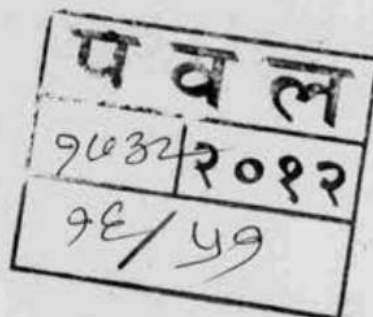 प व ल
१७३२ २०१२
१६/५१